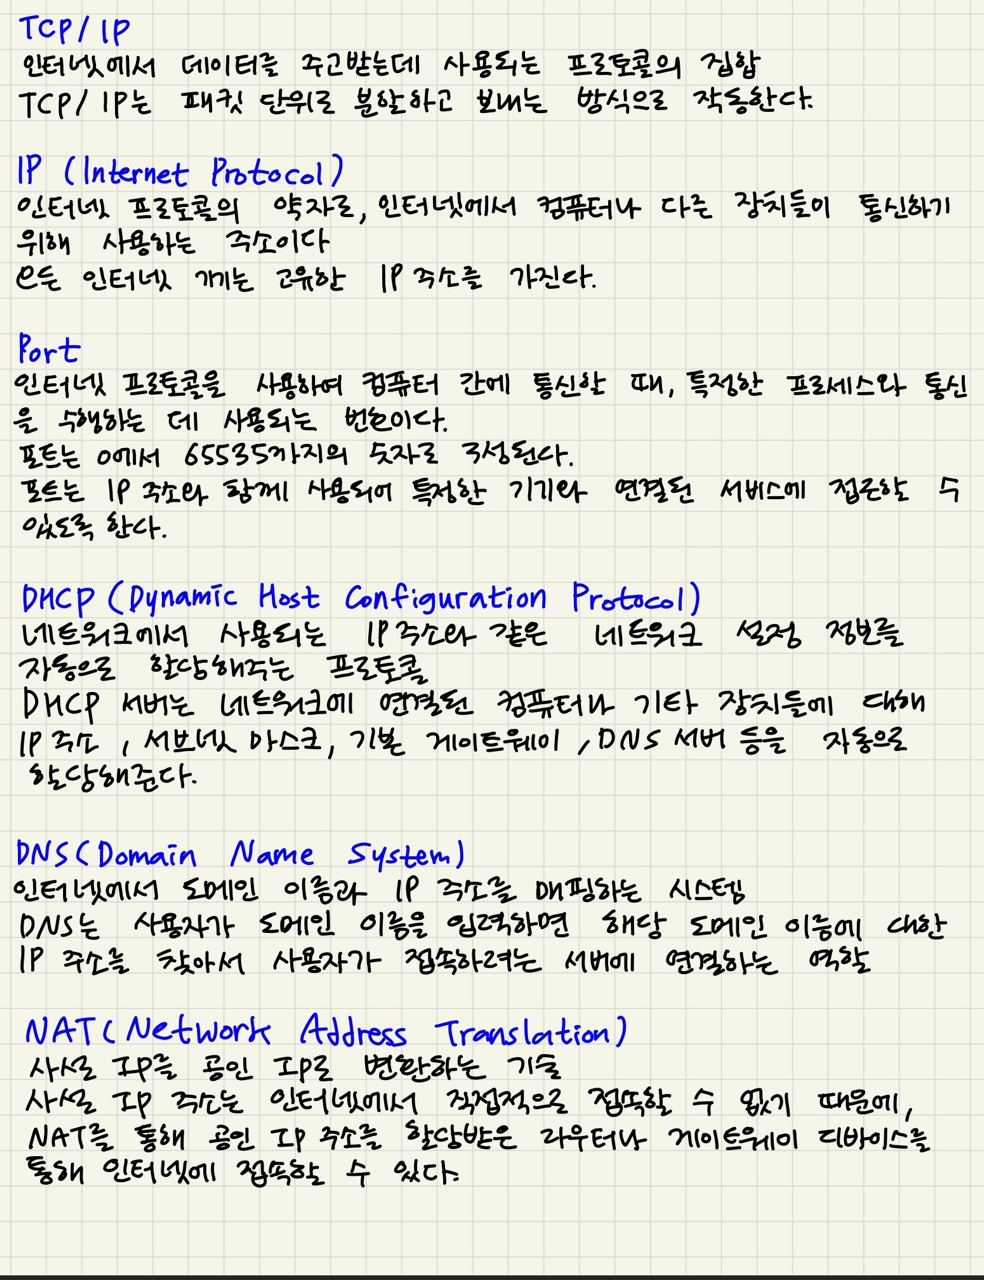 TCP/IP
인터넷에서 데이터를 주고받는데 사용되는 프로토콜의 집합
TCP/IP는 패킷 단위로 분할하고 보내는 방식으로 작동한다.
IP (Internet Protocol)
인터넷 프로토콜의 약자로, 인터넷에서 컴퓨터나 다른 장치들이 통신하기
위해 사용하는 주소이다
모든 인터넷 기기는 고유한 IP 주소를 가진다.
Port
인터넷 프로토콜을 사용하여 컴퓨터 간에 통신할 때, 특정한 프로세스와 통신
을 수행하는 데 사용되는 번호이다.
포트는 0에서 65535까지의 숫자로 구성된다.
포트는 IP 주소와 함께 사용되어 특정한 기기와 연결된 서비스에 접근할 수
있도록 한다.
DHCP (Dynamic Host Configuration Protocol)
네트워크에서 사용되는 IP 주소와 같은 네트워크 설정 정보를
자동으로 할당해주는 프로토콜
DHCP 서버는 네트워크에 연결된 컴퓨터나 기타 장치들에 대해
IP 주소, 서브넷 마스크, 기본 게이트웨이, DNS 서버 등을 자동으로
할당해준다.
DNS (Domain Name System)
인터넷에서 도메인 이름과 IP 주소를 매핑하는 시스템
DNS는 사용자가 도메인 이름을 입력하면 해당 도메인 이름에 대한
IP 주소를 찾아서 사용자가 접속하려는 서버에 연결하는 역할
NAT (Network Address Translation)
사설 IP를 공인 IP로 변환하는 기술
사설 IP 주소는 인터넷에서 직접적으로 접속할 수 없기 때문에,
NAT를 통해 공인 IP 주소를 할당받은 라우터나 게이트웨이 디바이스를
통해 인터넷에 접속할 수 있다.